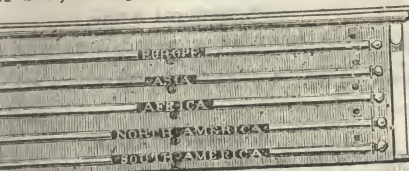 EUROPE
ASIA
AFRICA
NORTH AMERICA
SOUTH AMERICA